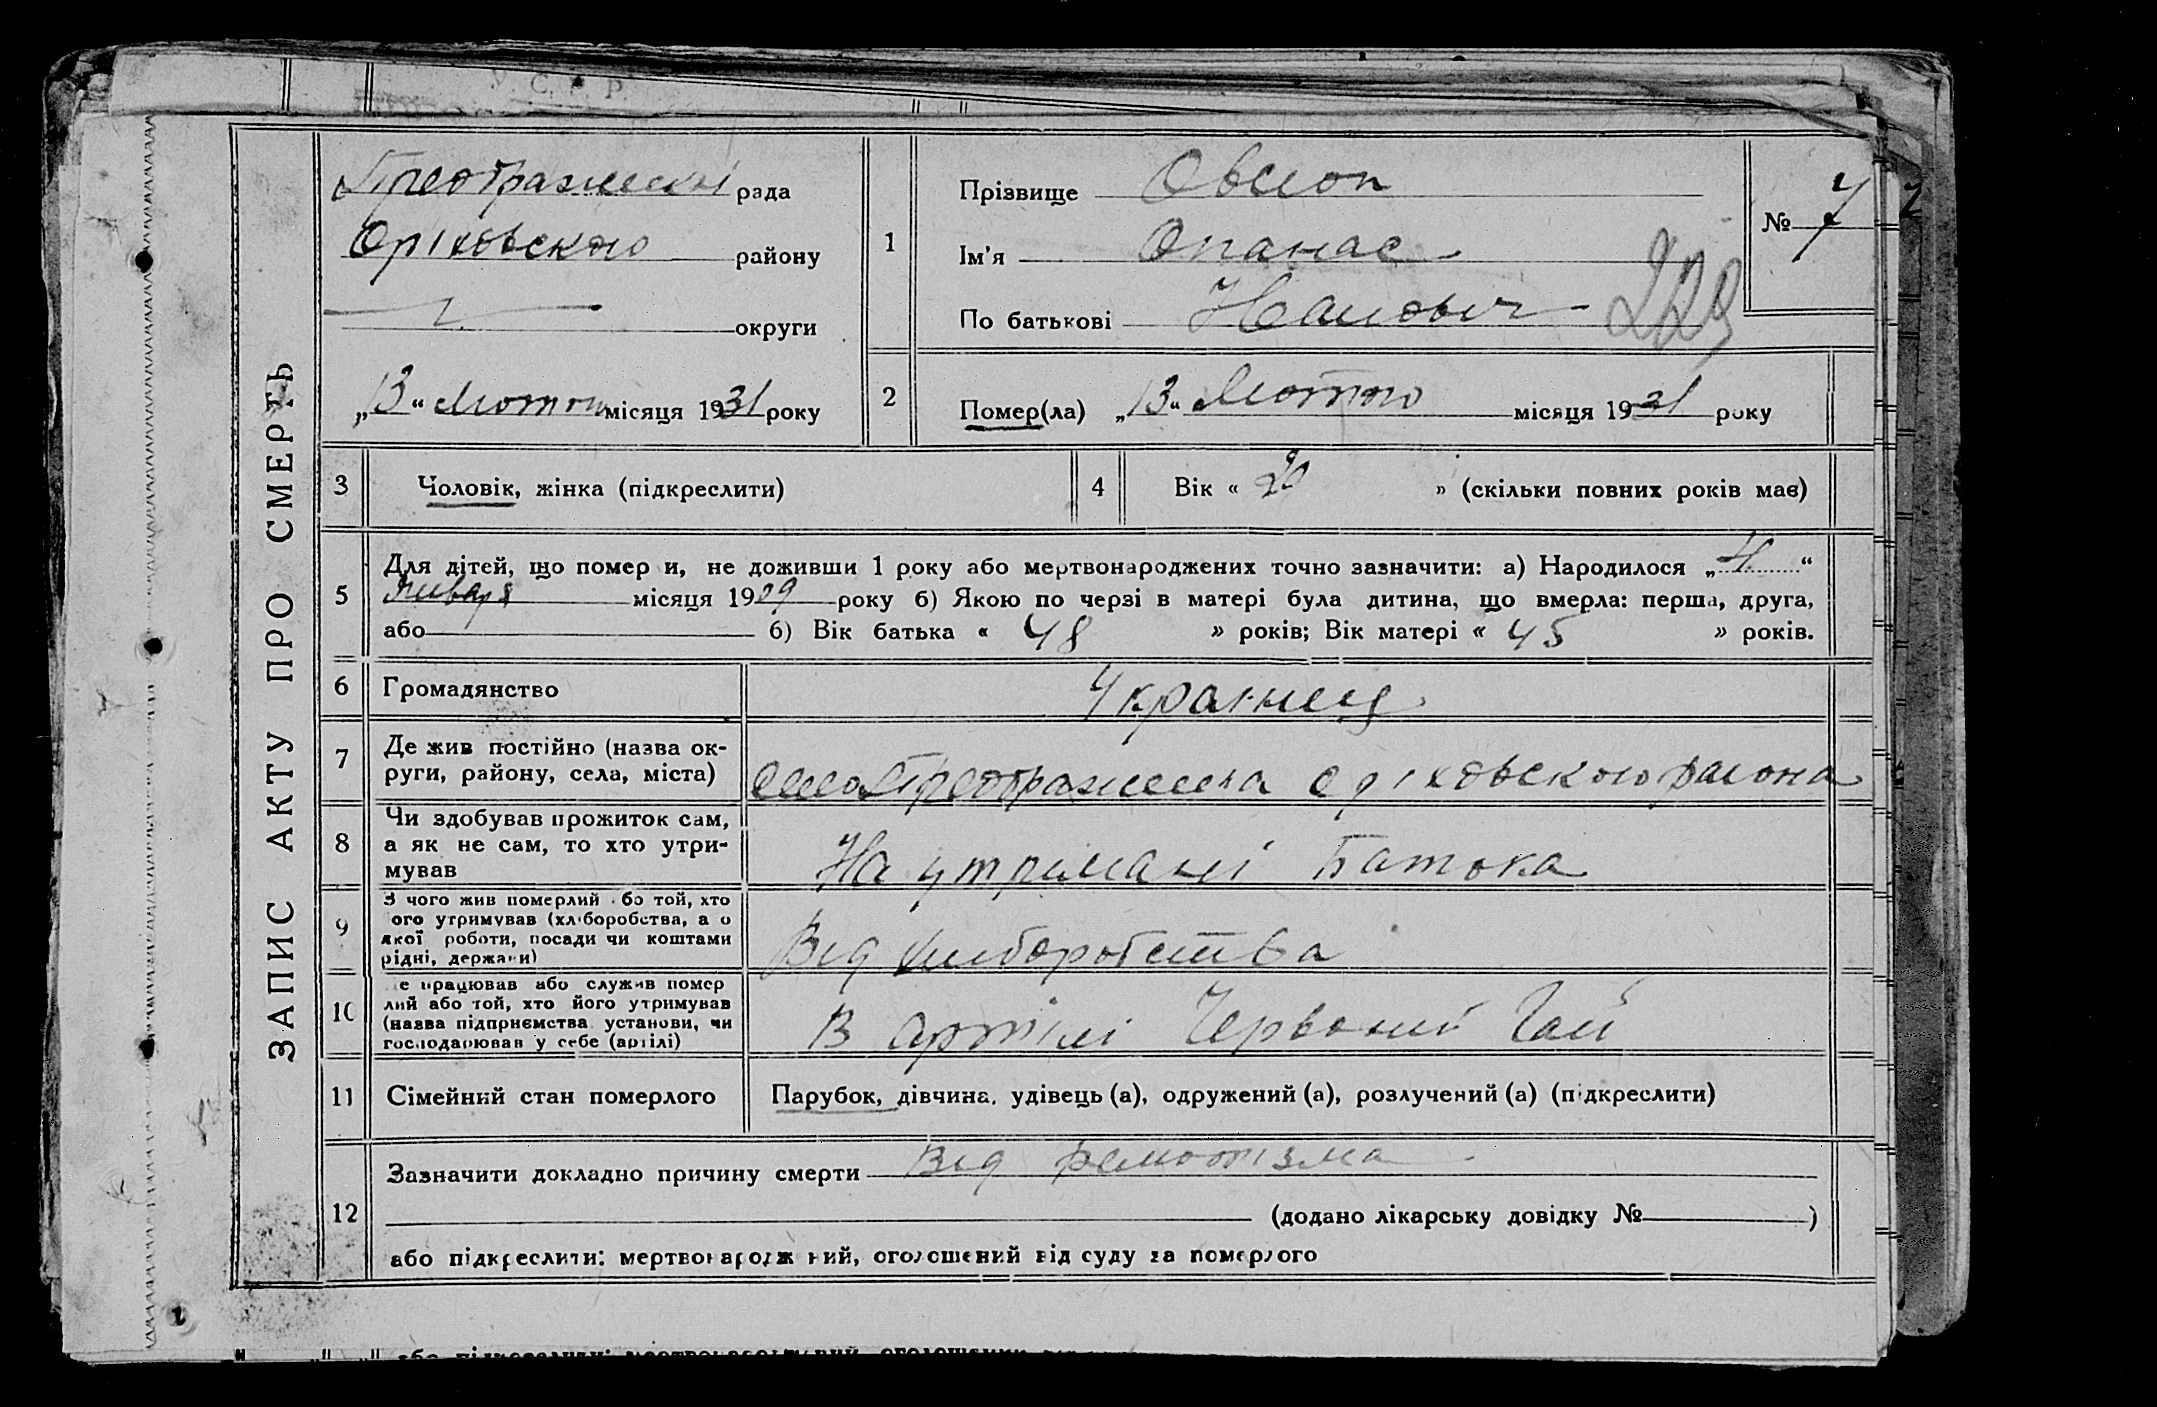 У. С. Р. Р.
ЗАПИС АКТУ ПРО СМЕРТЬ
рада
Оріховского району
округи
„13“ Лютого місяця 1931 року
1
Прізвище
Ім'я Опанас
По батькові Иванович
№ 7
229
2
Помер(ла) „13“ Лютого місяця 1931 року
3
Чоловік, жінка (підкреслити)
4
Вік « 20 » (скільки повних років має)
5
Для дітей, що помер и, не доживши 1 року або мертвонароджених точно зазначити: а) Народилося „ “
Января місяця 1909 року б) Якою по черзі в матері була дитина, що вмерла: перша, друга,
або б) Вік батька « 48 » років; Вік матері « 45 » років.
6
Громадянство
Украінец
7
Де жив постійно (назва ок-
руги, району, села, міста)
Оріховского района
8
Чи здобував прожиток сам,
а як не сам, то хто утри-
мував
На утримані Батька
9
З чого жив померлий або той, хто
його утримував (хліборобства, а о
якої роботи, посади чи коштами
рідні, держави)
Від хлиборобства
10
Де працював або служив помер
лий або той, хто його утримував
(назва підприємства установи, чи
господарював у себе (артілі)
В Артілі Червоний Гай
11
Сімейний стан померлого
Парубок, дівчина, удівець (а), одружений (а), розлучений (а) (підкреслити)
12
Зазначити докладно причину смерти Від
(додано лікарську довідку № )
або підкреслити: мертвонароджений, оголошений від суду за померлого